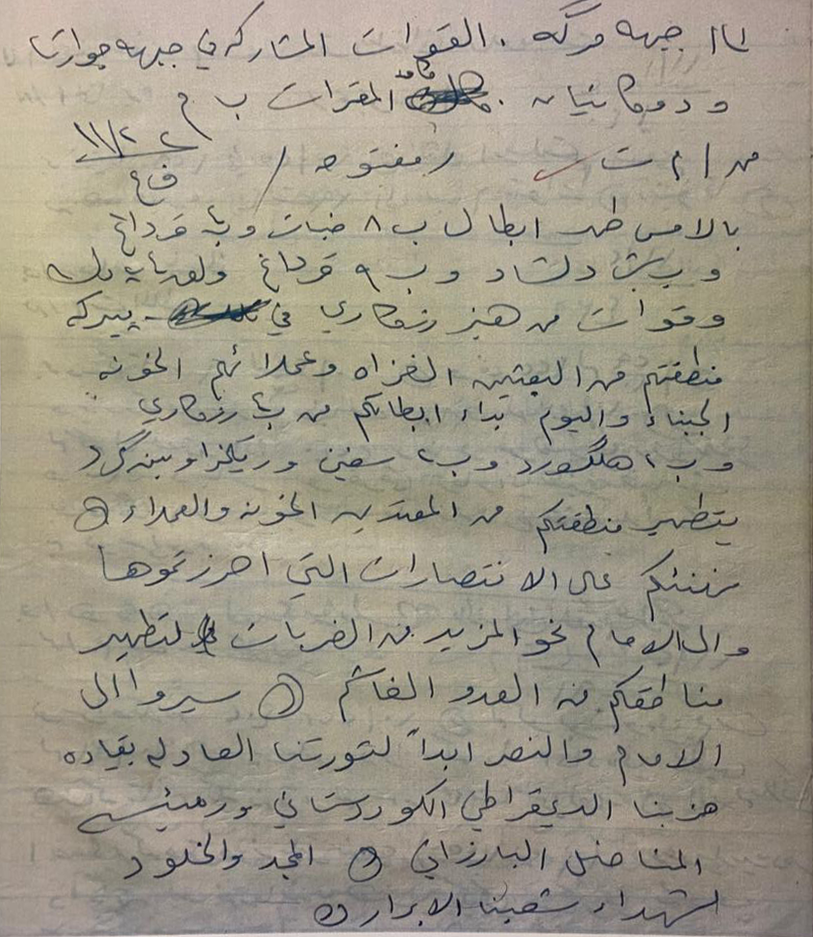 الى جبهه مرگه . القوات المشاركه في جبهه جوارتا
ودوكانيان . كافة المقرات ب م
من / م ت / مفتوحه / ٢٢/١١ ق ع
بالامس طهر ابطال ب ٨ خبات وب٤ قرداغ
وب ش دلشاد وب ٩ قرداغ
وقوات من هيز رزكاري في بيركه
منطقتهم من البعثيين الغزاه وعملائهم الخونه
الجبناء واليوم بداء ابطالكم من ب٤ رزكاري
وب١ هلگورد وب٢ سفين و
يتطهير منطقتكم من المعتدين الخونه والعملاء
نهنئكم على الانتصارات التي احرزتموها
والى الامام نحو المزيد من الضربات لتطهير
مناطقكم من العدو الغاشم سيروا الى
الامام والنصر ابداً لثورتنا العادله بقياده
حزبنا الديمقراطي الكوردستاني ورئيسه
المناضل البارزاني المجد والخلود
لشهداء شعبنا الابرار